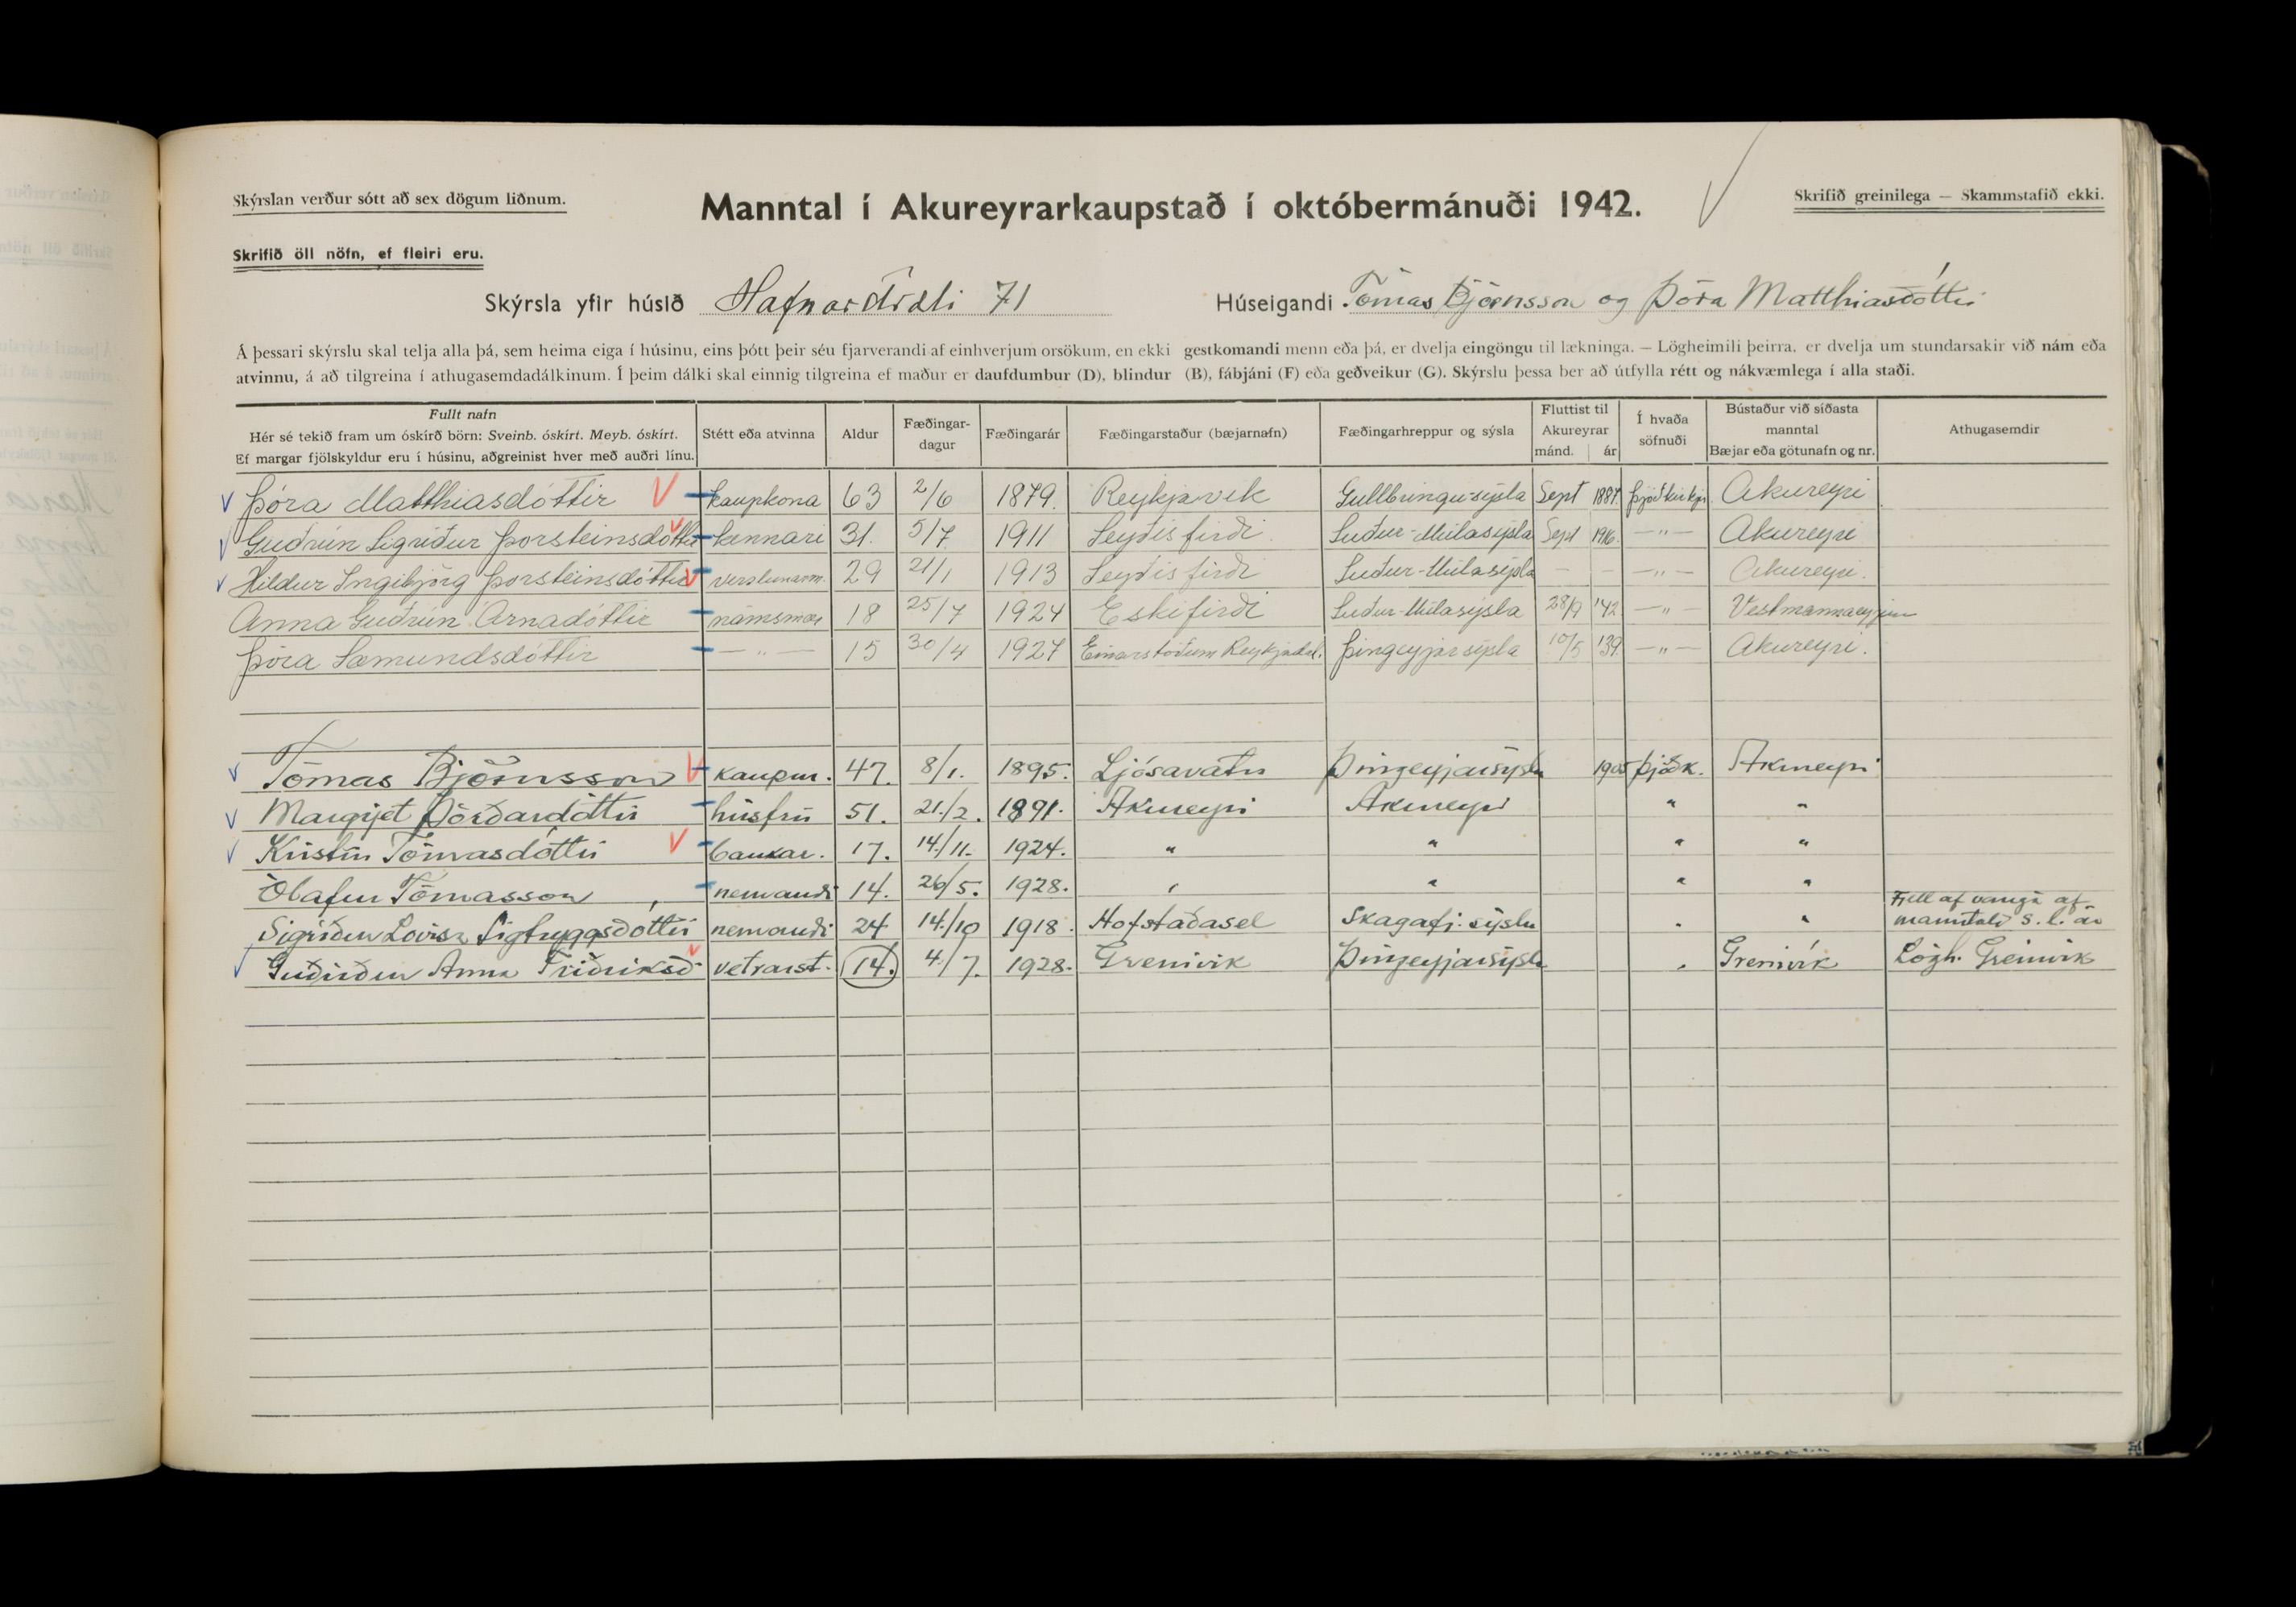 Skýrslan verður sótt að sex dögum liðnum.
Manntal í Akureyrarkaupstað í októbermánuði 1942.
Skrifið greinilega — Skammstafið ekki.
Skrifið öll nöfn, ef fleiri eru.
Skýrsla yfir húsið Hafnarstræti 71 Húseigandi Tómas Björnsson og Þóra Matthíasdóttir
Á þessari skýrslu skal telja alla þá, sem heima eiga í húsinu, eins þótt þeir séu fjarverandi af einhverjum orsökum, en ekki gestkomandi menn eða þá, er dvelja eingöngu til lækninga. — Lögheimili þeirra, er dvelja um stundarsakir við nám eða
atvinnu, á að tilgreina í athugasemdadálkinum. Í þeim dálki skal einnig tilgreina ef maður er daufdumbur (D), blindur (B), fábjáni (F) eða geðveikur (G). Skýrslu þessa ber að útfylla rétt og nákvæmlega í alla staði.
Fullt nafn
Hér sé tekið fram um óskírð börn: Sveinb. óskírt. Meyb. óskírt.
Ef margar fjölskyldur eru í húsinu, aðgreinist hver með auðri línu.
Stétt eða atvinna
Aldur
Fæðingar-
dagur
Fæðingarár
Fæðingarstaður (bæjarnafn)
Fæðingarhreppur og sýsla
Fluttist til
Akureyrar
mánd. ár
Í hvaða
söfnuði
Bústaður við síðasta
manntal
Bæjar eða götunafn og nr.
Athugasemdir
Þóra Matthiasdóttir kaupkona 63 2/6 1879. Reykjavík Gullbringusýsla Sept 1887. þjóðkirkju. Akureyri
Guðrún Sigríður Þorsteinsdóttir kennari 31. 5/7 1911 Seyðisfirði. Suður-Múlasýsla Sept 1916. —"— Akureyri
Hildur Ingibjörg Þorsteinsdóttir verslunarm. 29 21/1 1913 Seyðisfirði Suður-Múlasýsla — — —"— Akureyri.
Anna Guðrún Árnadóttir námsmær 18 25/7 1924 Eskifirði Suður-Múlasýsla 28/9 '42 —"— Vestmannaeyjum
Þóra Sæmundsdóttir —"— 15 30/4 1927 Einarstöðum Reykjadal. Þingeyjarsýsla 10/5 '39. —"— Akureyri.
Tómas Björnsson kaupm. 47. 8/1. 1895. Ljósavatn Þingeyjarsýslu 1905 þjóðk. Akureyri
Margrjet Þórðardóttir húsfrú 51. 21./2. 1891. Akureyri Akureyri " "
Kristín Tómasdóttir bankar. 17. 14./11. 1924. " " " "
Ólafur Tómasson nemandi 14. 26/5. 1928. " " " "
Sigríður Lovísa Sigtryggsdóttir nemandi 24 14./10 1918. Hofstaðasel Skagafj. sýslu " " Fjell af vangá af
manntali s. l. ár
Guðríður Anna Friðriksd. vetrarst. 14. 4./7. 1928. Grenivík Þingeyjarsýsla " Grenivík Lögh. Grenivík